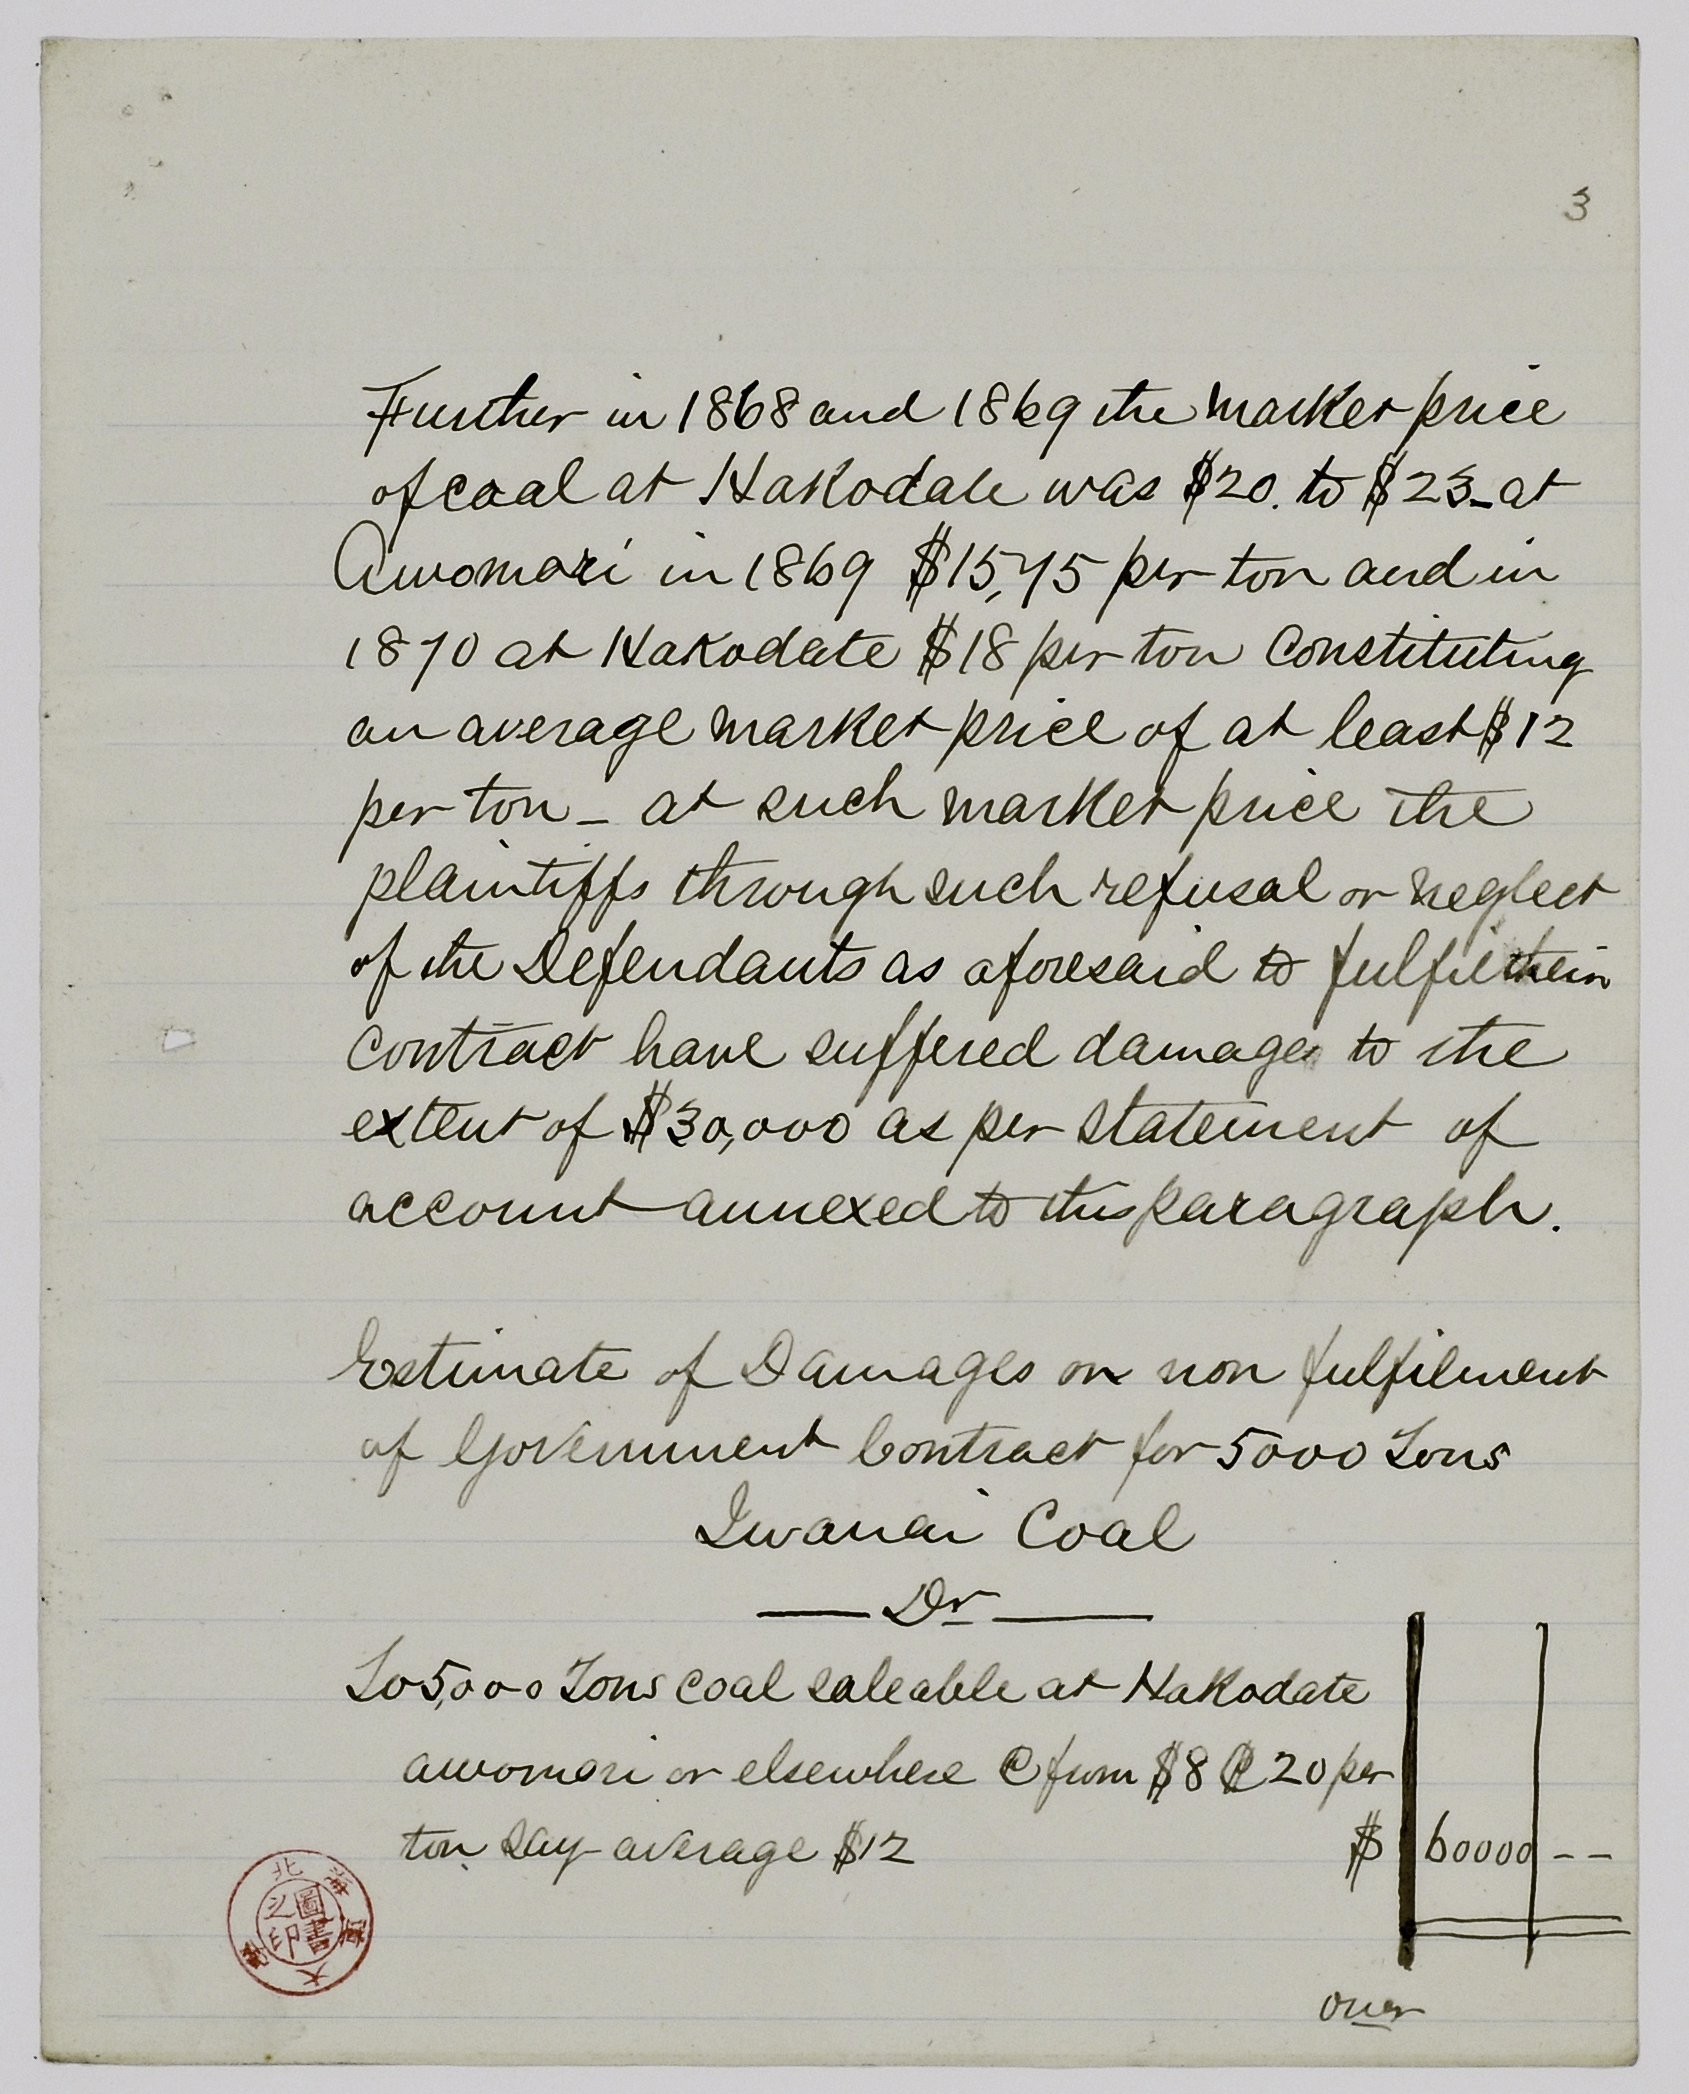 3
Further in 1868 and 1869 the market price
of coal at Hakodate was $20. to $23 - at
Awomori in 1869 $15,75 per ton and in
1870 at Hakodate $18 per ton constituting
an average market price of at least $12
per ton - at such market price the
plaintiffs through such refusal or neglect
of the Defendants as aforesaid to fulfil their
contract have suffered damages to the
extent of $30,000 as per statement of
account annexed to this paragraph.
Estimate of Damages on non fulfilment
of Government Contract for 5000 Tons
Iwanai Coal
Dr
To 5,000 Tons coal saleable at Hakodate
awomori or elsewhere @ from $8 @ 20 per
ton say average $12 $ 60000 - -
北海道大學
圖書
之印
over